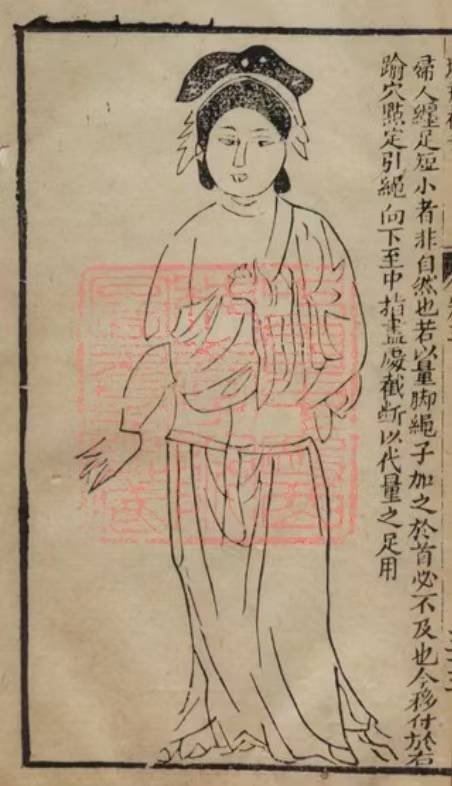 婦人纏足短小者非自然也若以量脚繩子加之於首必不及也今移付於右
踰穴點定引繩向下至中指盡處截斷以代量之足用